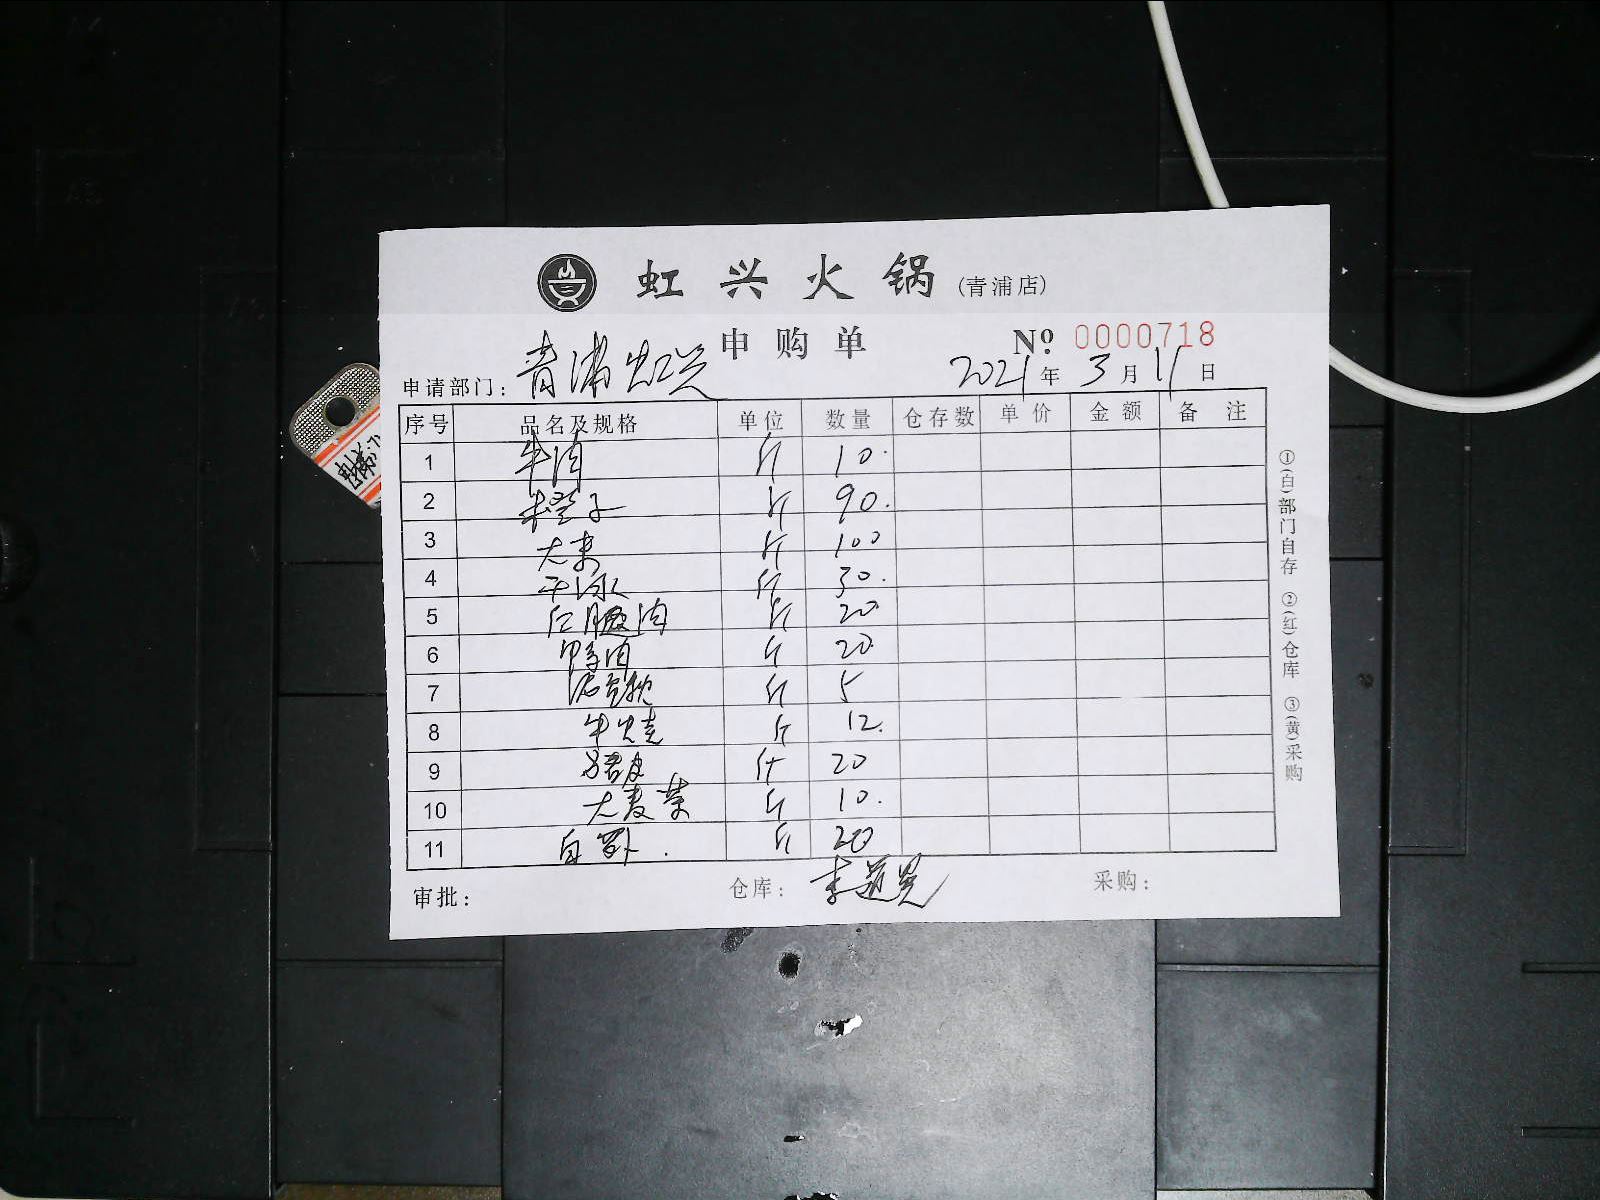 虹兴火锅(青浦店)
申购单 № 0000718
申请部门: 青浦虹兴 2021年3月11日
序号 品名及规格 单位 数量 仓存数 单价 金额 备注
1 牛肉 斤 10.
2 斤 90.
3 大 斤 100
4 斤 30.
5 腿肉 斤 20
6 鸭肉 斤 20.
7 斤 5
8 牛 斤 12.
9 皮 斤 20
10 大麦菜 斤 10.
11 白萝卜. 斤 20
审批: 仓库: 李 采购:
①(白)部门自存 ②(红)仓库 ③(黄)采购